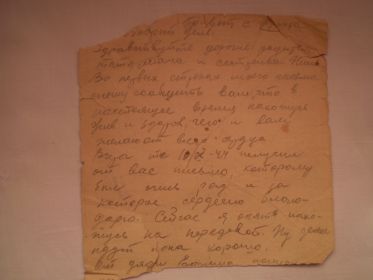 Привет с
Здравствуйте дорогие
тата, мама и сестрёнка
Во первых строках моего письма
хочу сообщить вам, что в
настоящее время нахожусь
жив и здоров, чего и вам
желаю от всего сердца
44 получил
от вас письмо, которому
был очень рад и за
которое сердечно благо-
дарю. Сейчас я опять нахо-
жусь на передовой. Ну дела
идут пока хорошо.
От дяди